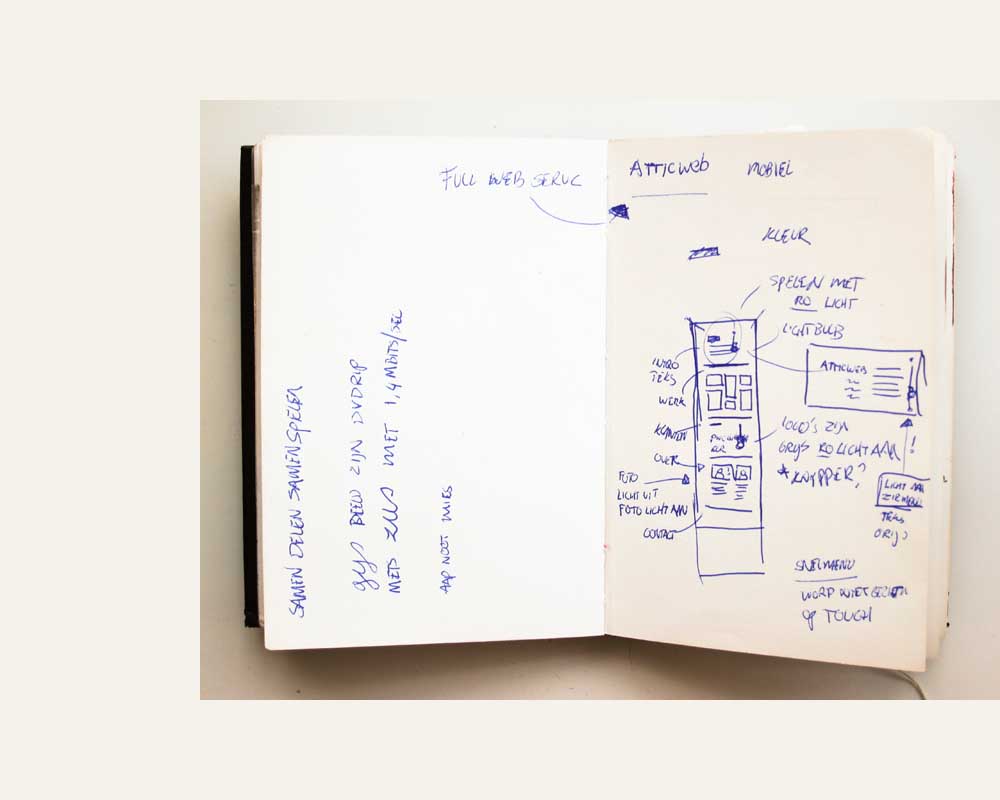 FULL WEB SERVC
SAMEN DELEN SAMENSPELEN
BEELD ZIJN DVDRIP
MET 1,4 MBITS/SEC
AAP NOOT MIES
ATTICWEB MOBIEL
KLEUR
SPELEN MET
RO LICHT
LIGHTBULB
INTRO
TEKS
WERK
KLANTEN
OVER
FOTO
LICHT UIT
FOTO LICHT AAN
CONTACT
ATTICWEB
LOGO'S ZIJN
GRIJS RO LICHT AAN
*KNIPPER?
!
LICHT AAN
TEKS
GRIJS
SNELMENU
WORD NIET
OP TOUCH